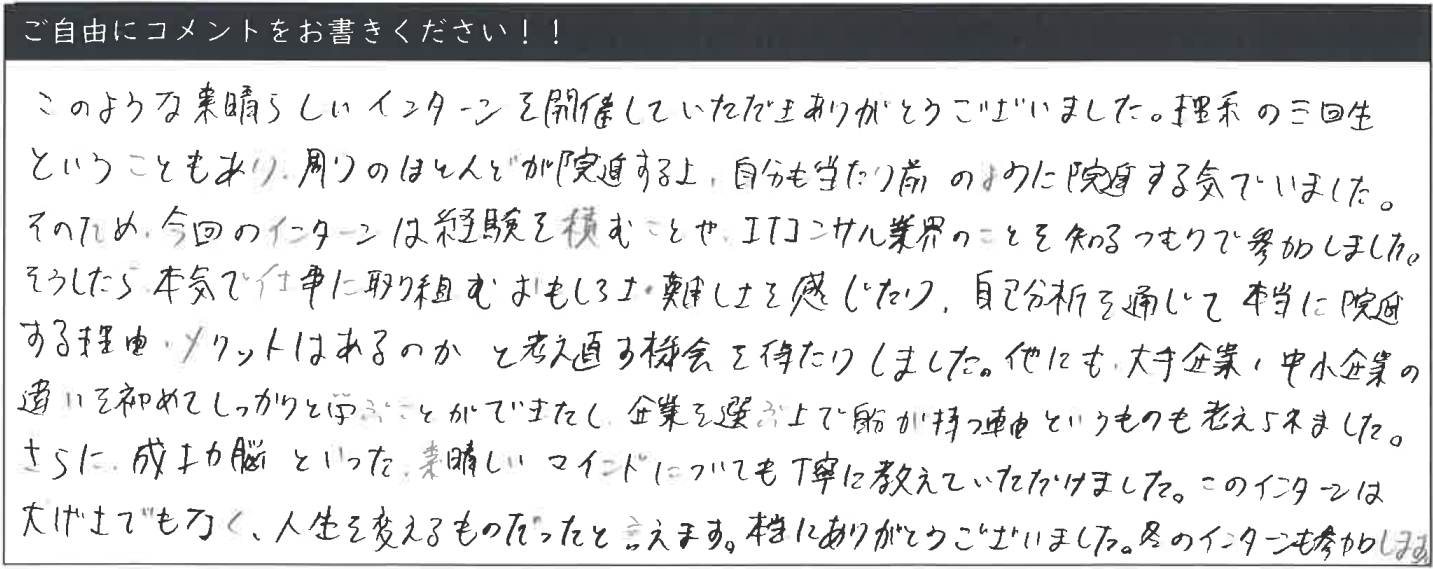 ご自由にコメントをお書きください！！
このような素晴らしいインターンを開催していただきありがとうございました。理系の三回生
ということもあり、周りのほとんどが院進する上、自分も当たり前のように院進する気でいました。
そのため、今回のインターンは経験を積むことや、ITコンサル業界のことを知るつもりで参加しました。
そうしたら、本気で仕事に取り組むおもしろさ・難しさを感じたり、自己分析を通じて本当に院進
する理由・メリットはあるのかと考え直す機会を得たりしました。他にも、大手企業、中小企業の
違いを初めてしっかりと学ぶことができたし、企業を選ぶ上で自分が持つ軸というものも考えられました。
さらに、成功脳といった、素晴しいマインドについても丁寧に教えていただけました。このインターンは
大げさでもなく、人生を変えるものだったと言えます。本当にありがとうございました。冬のインターンも参加します。